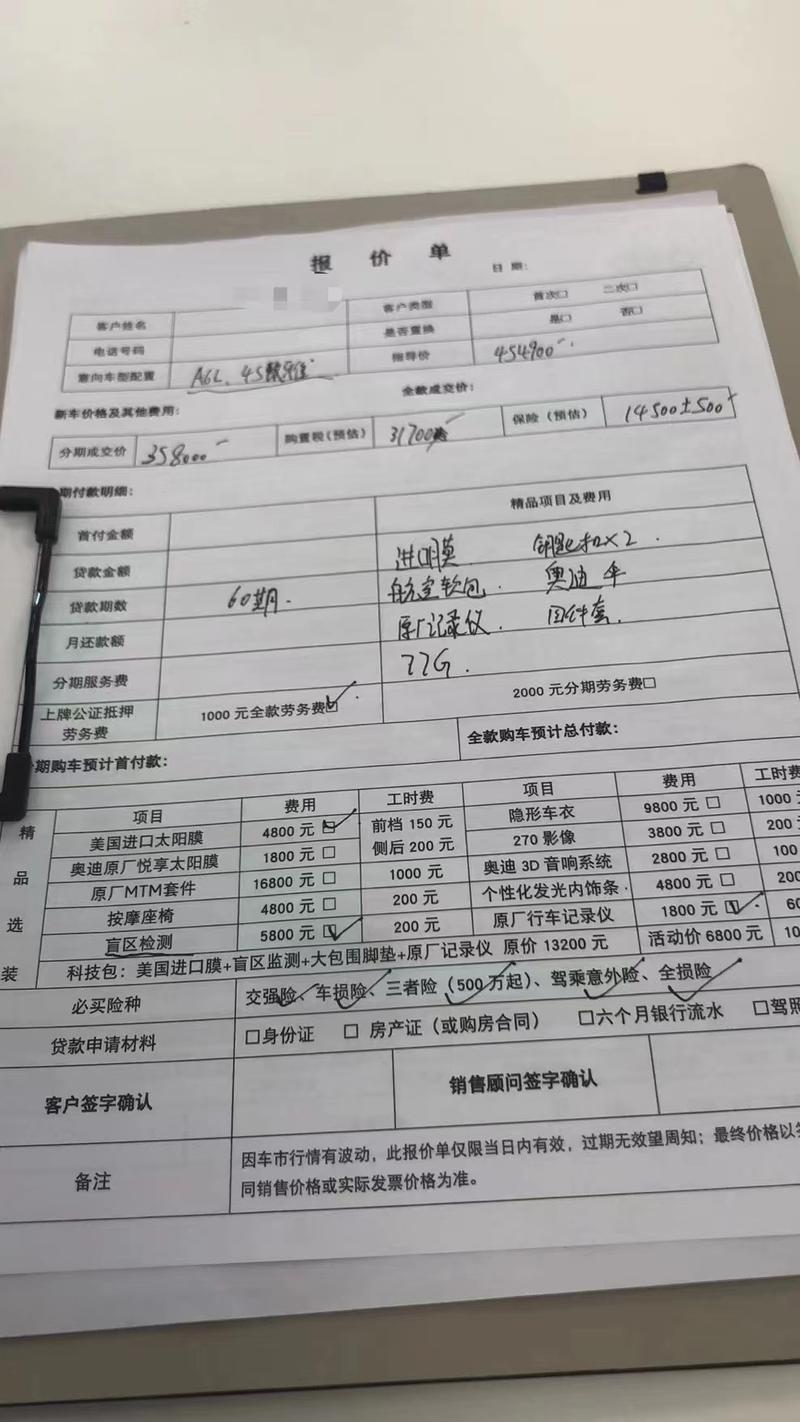 报 价 单
日 期:
客户姓名 客户类型 首次□ 二次□
电话号码 是否置换 是□ 否□
意向车型配置 A6L、45 指导价 454900
新车价格及其他费用: 全款成交价:
分期成交价 358000 购置税(预估) 31700 保险(预估) 14500±500
期付款明细:
首付金额 精品项目及费用
贷款金额 进口膜 钥匙扣×2
贷款期数 60期. 航空软包. 奥迪伞
月还款额 原厂记录仪.
分期服务费 77G.
上牌公证抵押劳务费 1000 元全款劳务费☑ 2000 元分期劳务费□
期购车预计首付款: 全款购车预计总付款:
精品选装
项目 费用 工时费 项目 费用 工时费
美国进口太阳膜 4800 元☑ 前档 150 元 隐形车衣 9800 元 □ 1000
奥迪原厂悦享太阳膜 1800 元 □ 侧后 200 元 270 影像 3800 元 □ 200
原厂MTM套件 16800 元 □ 1000 元 奥迪 3D 音响系统 2800 元 □ 100
按摩座椅 4800 元 □ 200 元 个性化发光内饰条 4800 元 □ 200
盲区检测 5800 元☑ 200 元 原厂行车记录仪 1800 元☑ 60
科技包:美国进口膜+盲区监测+大包围脚垫+原厂记录仪 原价 13200 元 活动价 6800 元 10
必买险种 交强险、车损险、三者险(500 万起)、驾乘意外险、全损险
贷款申请材料 □身份证 □ 房产证(或购房合同) □六个月银行流水 □驾照
客户签字确认 销售顾问签字确认
备注 因车市行情有波动,此报价单仅限当日内有效,过期无效望周知;最终价格以
同销售价格或实际发票价格为准。